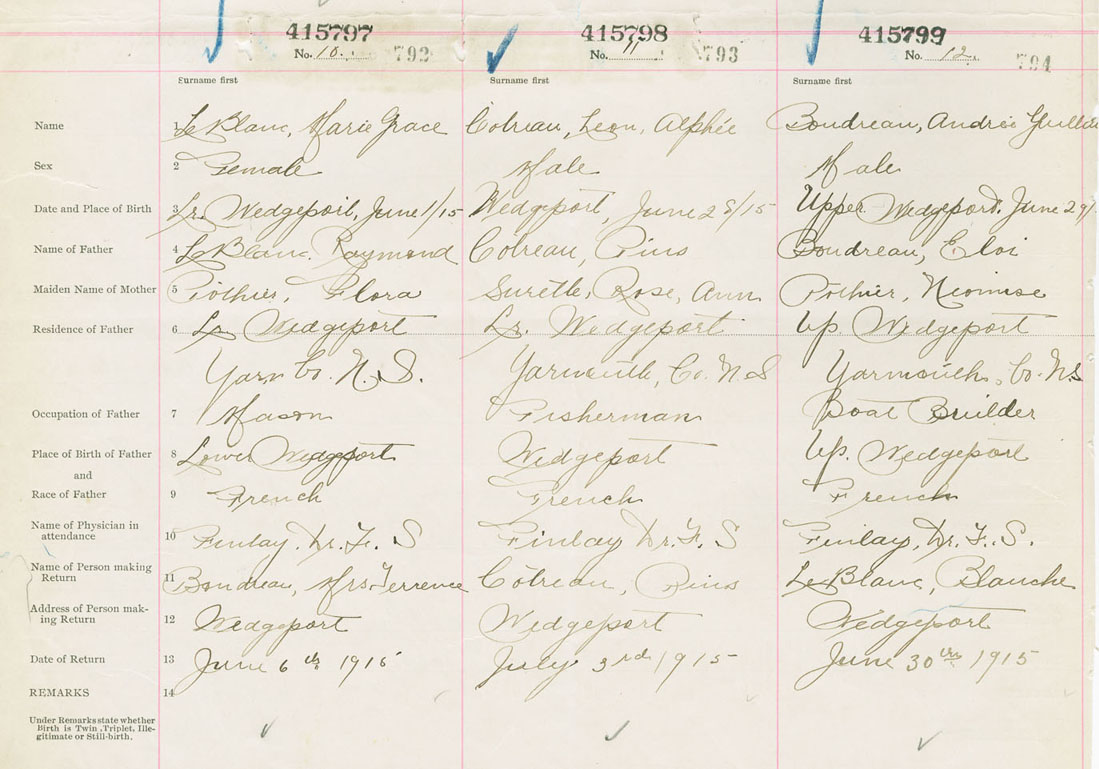 415797 415798 415799
No. 10. 792 No. 11 793 No. 12. 794
Surname first Surname first Surname first
Name 1 LeBlanc, Marie Grace Cotreau, Leon, Alphée Boudreau, Andrée
Sex 2 Female Male Male
Date and Place of Birth 3 Lr. Wedgeport, June 1/15 Wedgeport, June 28/15 Upper Wedgeport. June 29/
Name of Father 4 LeBlanc. Raymond Cotreau, Pius Boudreau, Eloi
Maiden Name of Mother 5 Pothier, Flora Surette, Rose, Ann Pothier, Neomise
Residence of Father 6 Lr Wedgeport Lr. Wedgeport Up. Wedgeport
Yarm Co. N. S. Yarmouth, Co. N. S Yarmouth, Co. N S
Occupation of Father 7 Mason Fisherman Boat Builder
Place of Birth of Father 8 Lower Wedgeport Wedgeport Up. Wedgeport
and
Race of Father 9 French French French
Name of Physician in
attendance 10 Finlay, Dr. F. S Finlay Dr. F. S Finlay, Dr. F. S.
Name of Person making
Return 11 Boudreau, Mrs Terrence Cotreau, Pius LeBlanc, Blanche
Address of Person mak-
ing Return 12 Wedgeport Wedgeport Wedgeport
Date of Return 13 June 6th 1915 July 3rd 1915 June 30ths 1915
REMARKS 14
Under Remarks state whether
Birth is Twin, Triplet, Ille-
gitimate or Still-birth.